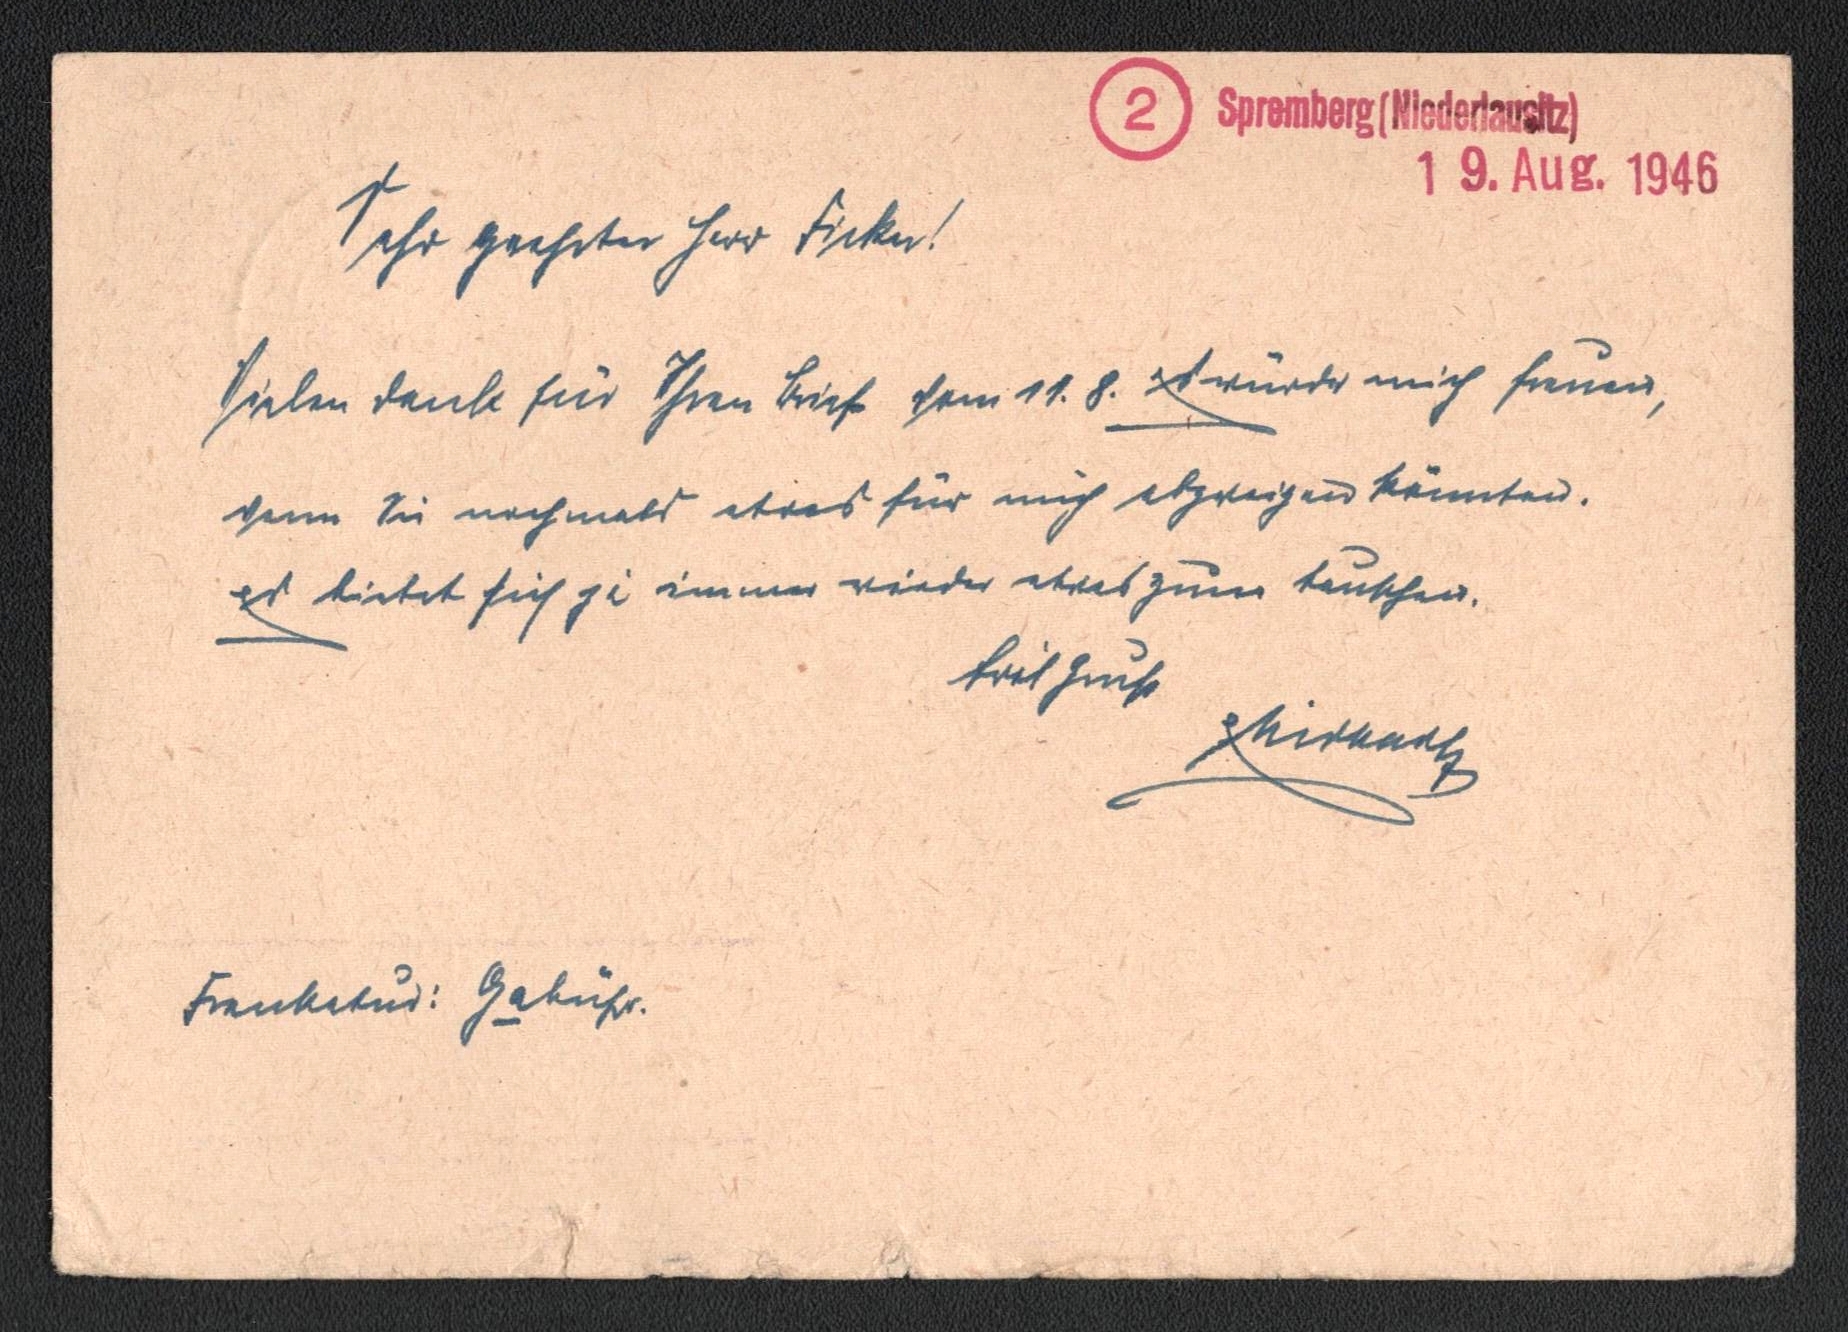 2 Spremberg (Niederlausitz)
19. Aug. 1946
Sehr geehrter Herr Ficker!
Vielen Dank für Ihren Brief vom 11. 8. Es würde mich freuen,
wenn Sie nochmals etwas für mich abzweigen könnten.
Es bietet sich ja immer wieder etwas zum tauschen.
Frdl Gruß
Frankatur: Gebühr.